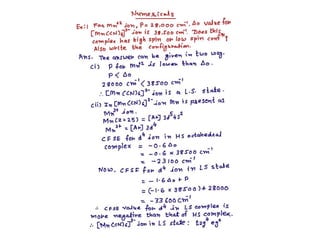 Numericals
Ex:1) For Mn³⁺ ion, P = 28,000 cm⁻¹. Δo value for
[Mn(CN)6]³⁻ ion is 38,500 cm⁻¹. Does this
complex has high spin or low spin config?
Also write the configuration.
Ans. The answer can be given in two way.
(i) P for Mn³⁺ is lower than Δo.
P < Δo
28000 cm⁻¹ < 38500 cm⁻¹
∴ [Mn(CN)6]³⁻ ion is a L.S. state.
(ii) In [Mn(CN)6]³⁻ ion Mn is present as
Mn³⁺ ion.
Mn (z=25) = [Ar] 3d⁵ 4s²
Mn³⁺ = [Ar] 3d⁴
CFSE for d⁴ ion in HS octahedral
complex = -0.6 Δo
= -0.6 × 38500 cm⁻¹
= -23100 cm⁻¹
Now, CFSE for d⁴ ion in LS state
= -1.6 Δo + P
= (-1.6 × 38500) + 28000
= -33600 cm⁻¹
∴ CFSE value for d⁴ in LS complex is
more negative than that of HS complex.
∴ [Mn(CN)6]³⁻ ion in LS state : t2g⁴ eg⁰